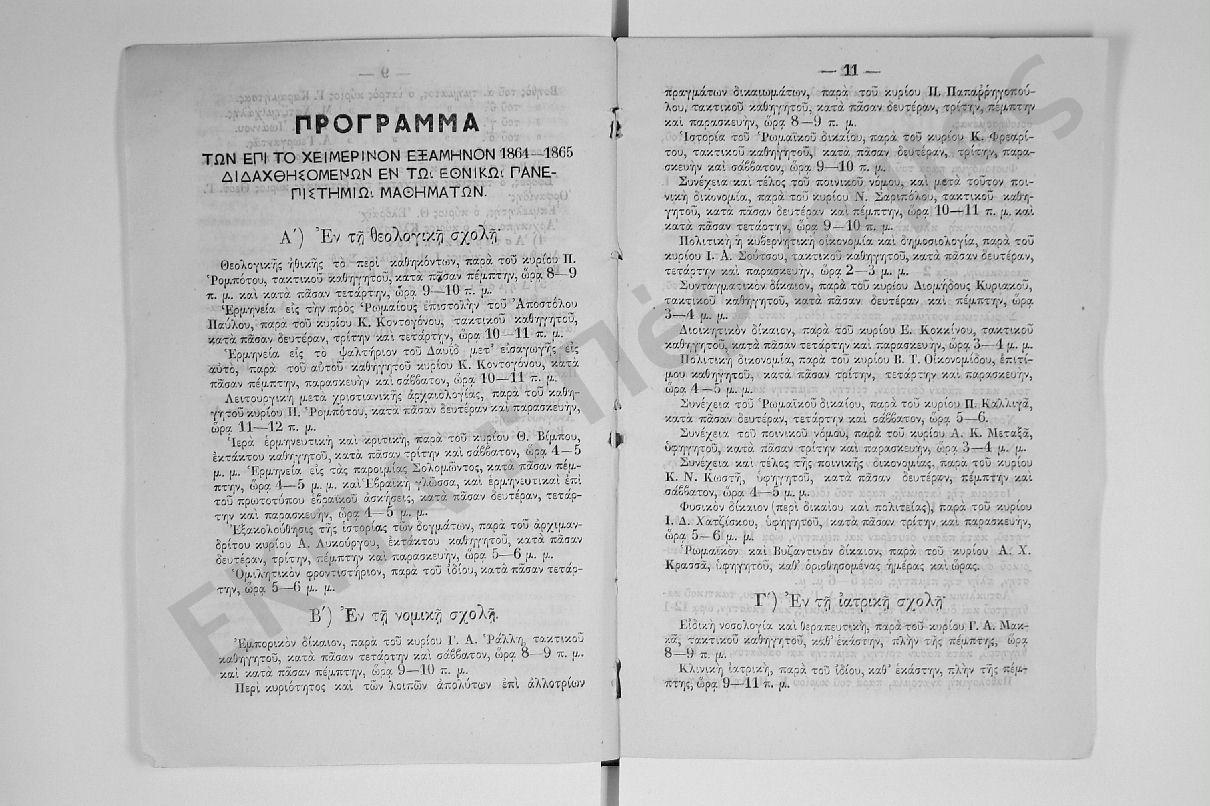 ΠΡΟΓΡΑΜΜΑ
ΤΩΝ ΕΠΙ ΤΟ ΧΕΙΜΕΡΙΝΟΝ ΕΞΑΜΗΝΟΝ 1864—1865
ΔΙΔΑΧΘΗΣΟΜΕΝΩΝ ΕΝ ΤΩι ΕΘΝΙΚΩι ΠΑΝΕ-
ΠΙΣΤΗΜΙΩι ΜΑΘΗΜΑΤΩΝ.
Α΄) Ἐν τῇ θεολογικῇ σχολῇ·
Θεολογικῆς ἠθικῆς τὸ περὶ καθηκόντων, παρὰ τοῦ κυρίου Π.
Ῥομπότου, τακτικοῦ καθηγητοῦ, κατὰ πᾶσαν πέμπτην, ὥρᾳ 8—9
π. μ. καὶ κατὰ πᾶσαν τετάρτην, ὥρᾳ 9—10 π. μ.
Ἑρμηνεία εἰς τὴν πρὸς Ῥωμαίους ἐπιστολὴν τοῦ Ἀποστόλου
Παύλου, παρὰ τοῦ κυρίου Κ. Κοντογόνου, τακτικοῦ καθηγητοῦ,
κατὰ πᾶσαν δευτέραν, τρίτην καὶ τετάρτην, ὥρᾳ 10—11 π. μ.
Ἑρμηνεία εἰς τὸ ψαλτήριον τοῦ Δαυῒδ μετ' εἰσαγωγῆς εἰς
αὐτὸ, παρὰ τοῦ αὐτοῦ καθηγητοῦ κυρίου Κ. Κοντογόνου, κατὰ
πᾶσαν πέμπτην, παρασκευὴν καὶ σάββατον, ὥρᾳ 10—11 π. μ.
Λειτουργικὴ μετὰ χριστιανικῆς ἀρχαιολογίας, παρὰ τοῦ καθη-
γητοῦ κυρίου Π. Ῥομπότου, κατὰ πᾶσαν δευτέραν καὶ παρασκευὴν,
ὥρᾳ 11—12 π. μ.
Ἱερὰ ἑρμηνευτικὴ καὶ κριτικὴ, παρὰ τοῦ κυρίου Θ. Βίμπου,
ἐκτάκτου καθηγητοῦ, κατὰ πᾶσαν τρίτην καὶ σάββατον, ὥρᾳ 4—5
μ. μ. Ἑρμηνεία εἰς τὰς παροιμίας Σολομῶντος, κατὰ πᾶσαν πέμ-
πτην, ὥρᾳ 4—5 μ. μ. καὶ Ἑβραϊκὴ γλῶσσα, καὶ ἑρμηνευτικαὶ ἐπὶ
τοῦ πρωτοτύπου ἑβραϊκοῦ ἀσκήσεις, κατὰ πᾶσαν δευτέραν, τετάρ-
την καὶ παρασκευὴν, ὥρᾳ 4—5 μ. μ.
Ἐξακολούθησις τῆς ἱστορίας τῶν δογμάτων, παρὰ τοῦ ἀρχιμαν-
δρίτου κυρίου Α. Λυκούργου, ἐκτάκτου καθηγητοῦ, κατὰ πᾶσαν
δευτέραν, τρίτην, πέμπτην καὶ παρασκευὴν, ὥρᾳ 5—6 μ. μ.
Ὁμιλητικὸν φροντιστήριον, παρὰ τοῦ ἰδίου, κατὰ πᾶσαν τετάρ-
την, ὥρᾳ 5—6 μ. μ.
Β΄) Ἐν τῇ νομικῇ σχολῇ.
Ἐμπορικὸν δίκαιον, παρὰ τοῦ κυρίου Γ. Α. Ῥάλλη, τακτικοῦ
καθηγητοῦ, κατὰ πᾶσαν τετάρτην καὶ σάββατον, ὥρᾳ 8—9 π. μ.
καὶ κατὰ πᾶσαν πέμπτην, ὥρᾳ 9—10 π. μ.
Περὶ κυριότητος καὶ τῶν λοιπῶν ἀπολύτων ἐπὶ ἀλλοτρίων
— 11 —
πραγμάτων δικαιωμάτων, παρὰ τοῦ κυρίου Π. Παπαῤῥηγοπού-
λου, τακτικοῦ καθηγητοῦ, κατὰ πᾶσαν δευτέραν, τρίτην, πέμπτην
καὶ παρασκευὴν, ὥρᾳ 8—9 π. μ.
Ἱστορία τοῦ Ῥωμαϊκοῦ δικαίου, παρὰ τοῦ κυρίου Κ. Φρεαρί-
του, τακτικοῦ καθηγητοῦ, κατὰ πᾶσαν δευτέραν, τρίτην, παρα-
σκευὴν καὶ σάββατον, ὥρᾳ 9—10 π. μ.
Συνέχεια καὶ τέλος τοῦ ποινικοῦ νόμου, καὶ μετὰ τοῦτον ποι-
νικὴ δικονομία, παρὰ τοῦ κυρίου Ν. Σαριπόλου, τακτικοῦ καθη-
γητοῦ, κατὰ πᾶσαν δευτέραν καὶ πέμπτην, ὥρᾳ 10—11 π. μ. καὶ
κατὰ πᾶσαν τετάρτην, ὥρᾳ 9—10 π. μ.
Πολιτικὴ ἢ κυβερνητικὴ οἰκονομία καὶ δημοσιολογία, παρὰ τοῦ
κυρίου Ι. Α. Σούτσου, τακτικοῦ καθηγητοῦ, κατὰ πᾶσαν δευτέραν,
τετάρτην καὶ παρασκευὴν, ὥρᾳ 2—3 μ. μ.
Συνταγματικὸν δίκαιον, παρὰ τοῦ κυρίου Διομήδους Κυριακοῦ,
τακτικοῦ καθηγητοῦ, κατὰ πᾶσαν δευτέραν καὶ πέμπτην, ὥρᾳ
3—4 μ. μ.
Διοικητικὸν δίκαιον, παρὰ τοῦ κυρίου Ε. Κοκκίνου, τακτικοῦ
καθηγητοῦ, κατὰ πᾶσαν τετάρτην καὶ παρασκευὴν, ὥρᾳ 3—4 μ. μ.
Πολιτικὴ δικονομία, παρὰ τοῦ κυρίου Β. Τ. Οἰκονομίδου, ἐπιτί-
μου καθηγητοῦ, κατὰ πᾶσαν τρίτην, τετάρτην καὶ παρασκευὴν,
ὥρᾳ 4—5 μ. μ.
Συνέχεια τοῦ Ῥωμαϊκοῦ δικαίου, παρὰ τοῦ κυρίου Π. Καλλιγᾶ,
κατὰ πᾶσαν δευτέραν, τετάρτην καὶ σάββατον, ὥρᾳ 5—6.
Συνέχεια τοῦ ποινικοῦ νόμου, παρὰ τοῦ κυρίου Α. Κ. Μεταξᾶ,
ὑφηγητοῦ, κατὰ πᾶσαν τρίτην καὶ παρασκευὴν, ὥρᾳ 3—4 μ. μ.
Συνέχεια καὶ τέλος τῆς ποινικῆς δικονομίας, παρὰ τοῦ κυρίου
Κ. Ν. Κωστῆ, ὑφηγητοῦ, κατὰ πᾶσαν δευτέραν, πέμπτην καὶ
σάββατον, ὥρᾳ 4—5 μ. μ.
Φυσικὸν δίκαιον (περὶ δικαίου καὶ πολιτείας), παρὰ τοῦ κυρίου
Ι. Δ. Χατζίσκου, ὑφηγητοῦ, κατὰ πᾶσαν τρίτην καὶ παρασκευὴν,
ὥρᾳ 5—6 μ. μ.
Ῥωμαϊκὸν καὶ Βυζαντινὸν δίκαιον, παρὰ τοῦ κυρίου Α. Χ.
Κρασσᾶ, ὑφηγητοῦ, καθ' ὁρισθησομένας ἡμέρας καὶ ὥρας.
Γ΄) Ἐν τῇ ἰατρικῇ σχολῇ·
Εἰδικὴ νοσολογία καὶ θεραπευτικὴ, παρὰ τοῦ κυρίου Γ. Α. Μακ-
κᾶ, τακτικοῦ καθηγητοῦ, καθ' ἑκάστην, πλὴν τῆς πέμπτης, ὥρᾳ
8—9 π. μ.
Κλινικὴ ἰατρικὴ, παρὰ τοῦ ἰδίου, καθ' ἑκάστην, πλὴν τῆς πέμ-
πτης, ὥρᾳ 9—11 π. μ.